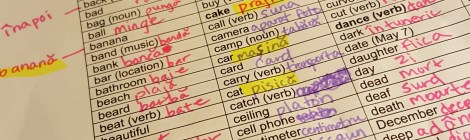 înapoi
banană
bad
bag (noun) pungă
ball minge
banana
band (music) bandă
bank bancă
bar (location) bar
bathroom baie
beach plajă
beard barbă
beat (verb) bate
beautiful
buy
cake
call (verb) suna
camera
camp (noun) tabără
car mașină
card card
carry (verb)
cat pisică
catch (verb)
ceiling
cell phone
centimeter
cut (verb)
dance (verb)
dark întuneric
date (May 7)
daughter fiica
day
dead mort
deaf surd
death moarte
December